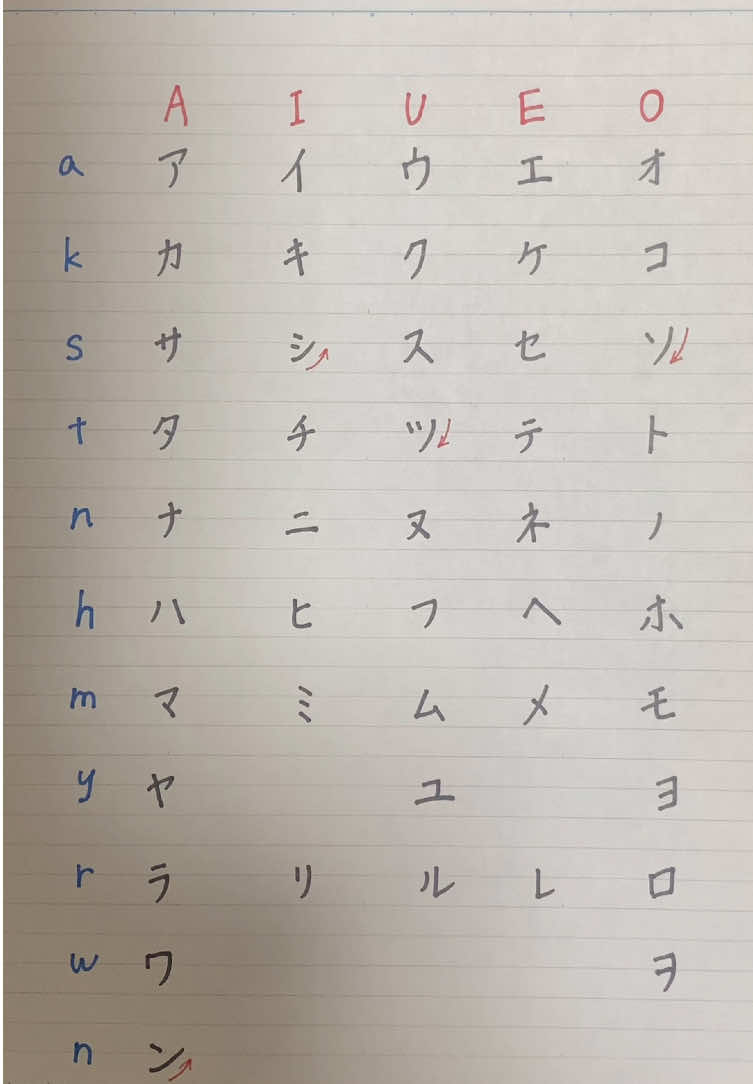 A I U E O
a ア イ ウ エ オ
k カ キ ク ケ コ
s サ シ ス セ ソ
t タ チ ツ テ ト
n ナ ニ ヌ ネ ノ
h ハ ヒ フ ヘ ホ
m マ ミ ム メ モ
y ヤ ユ ヨ
r ラ リ ル レ ロ
w ワ ヲ
n ン